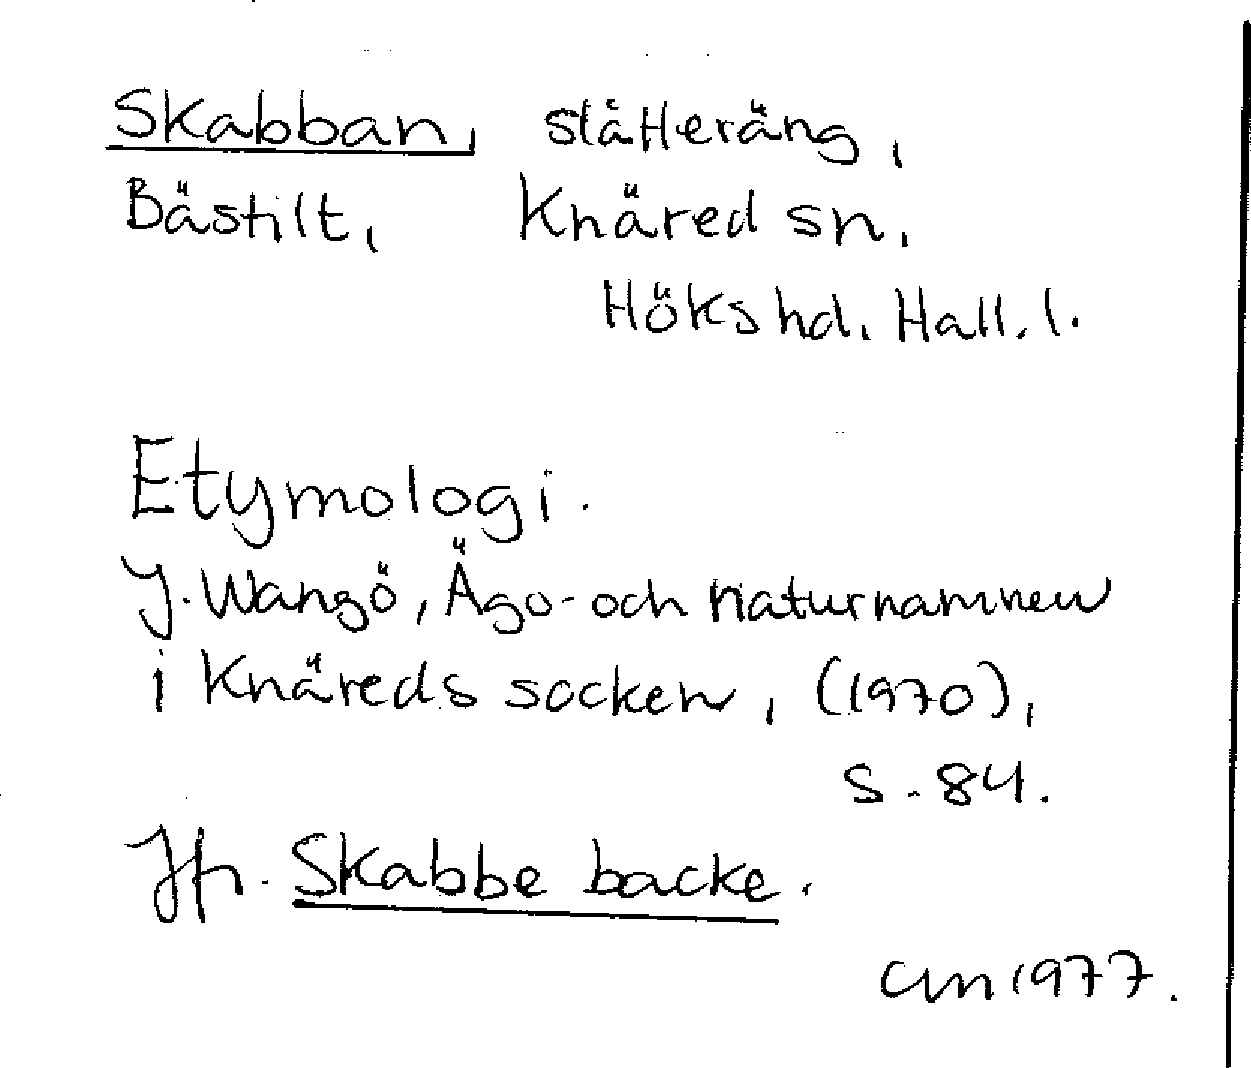 Skabban, slåtteräng,
Bästilt, Knäred sn,
Höks hd. Hall. l.
Etymologi.
J. Wangö, Ägo- och naturnamnen
i Knäreds socken, (1970),
s. 84.
Jfr. Skabbe backe.
CM 1977.